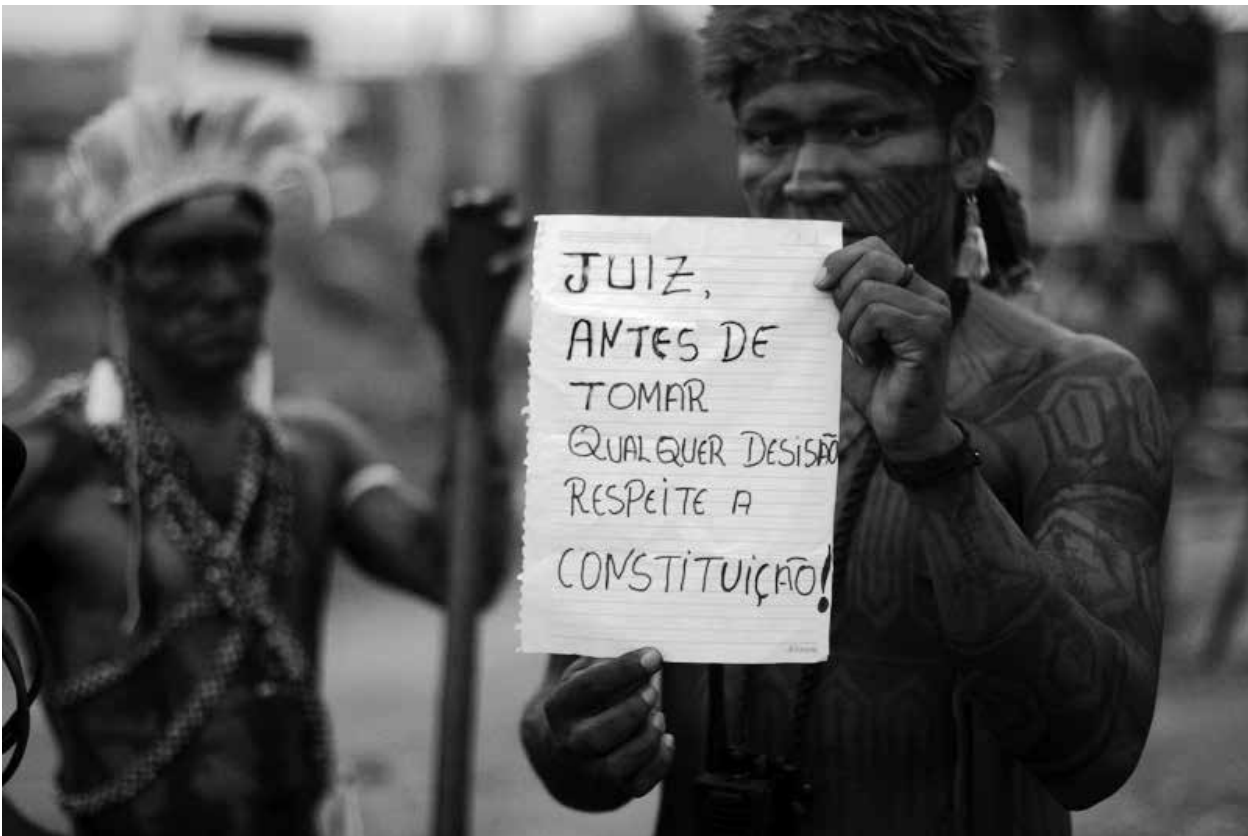 JUIZ,
ANTES DE
TOMAR
QUALQUER DESISÃO
RESPEITE A
CONSTITUIÇÃO!